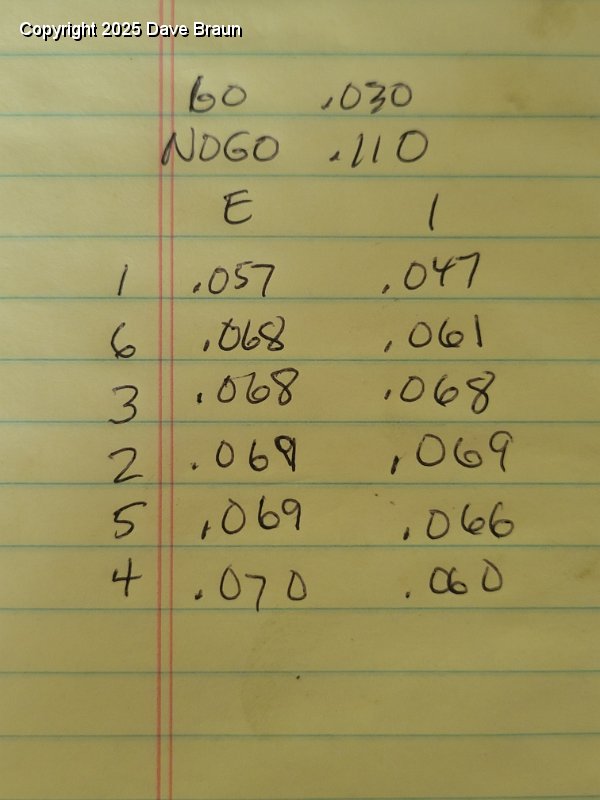 Copyright 2025 Dave Braun
GO .030
NOGO .110
E I
1 .057 .047
6 .068 .061
3 .068 .068
2 .069 .069
5 .069 .066
4 .070 .060